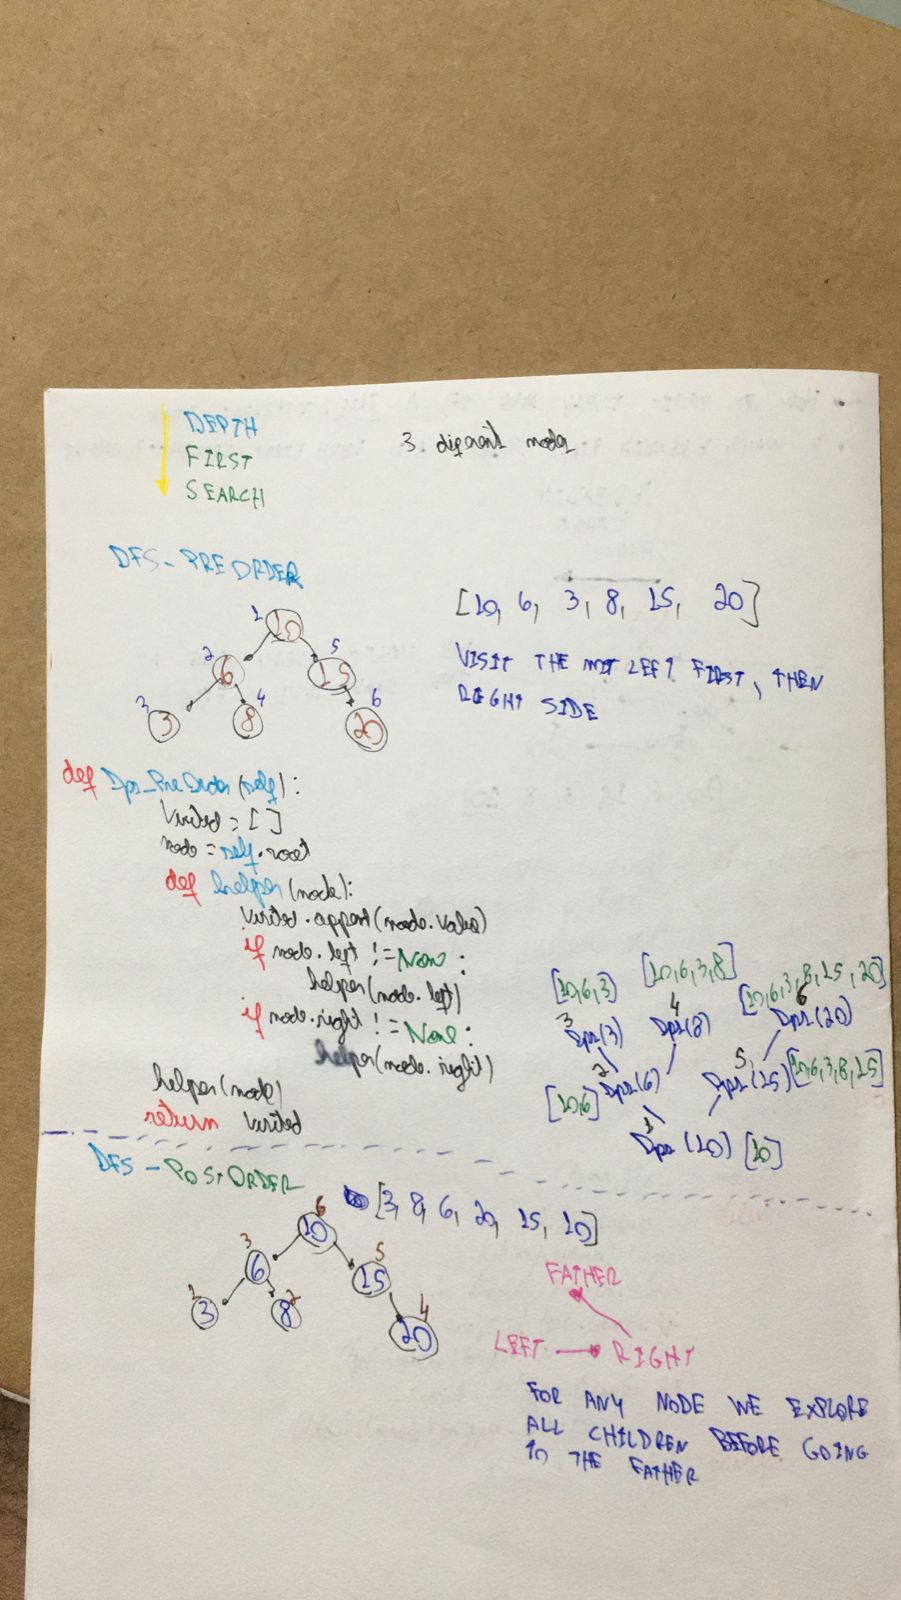 DEPTH
FIRST
SEARCH
3 diferent modes
DFS - PRE ORDER
1
10
2
6
5
15
3
3
4
8
6
20
[10, 6, 3, 8, 15, 20]
VISIT THE MOST LEFT FIRST, THEN
RIGHT SIDE
def Dps_PreOrder (self):
Visited = [ ]
node = self.root
def helper (node):
Visited.append(node.value)
if node.left != None :
helper(node.left)
if node.right != None :
helper(node.right)
helper(node)
return visited
[10,6,3] [10,6,3,8] [10,6,3,8,15,20]
3 4 6
Dps(3) Dps(8) Dps(20)
2 5
[10,6] Dps(6) Dps(15) [10,6,3,8,15]
1
Dps (10) [10]
DFS - POST ORDER
[3, 8, 6, 20, 15, 10]
6
10
3
6
5
15
1
3
2
8
4
20
FATHER
LEFT RIGHT
FOR ANY NODE WE EXPLORE
ALL CHILDREN BEFORE GOING
TO THE FATHER